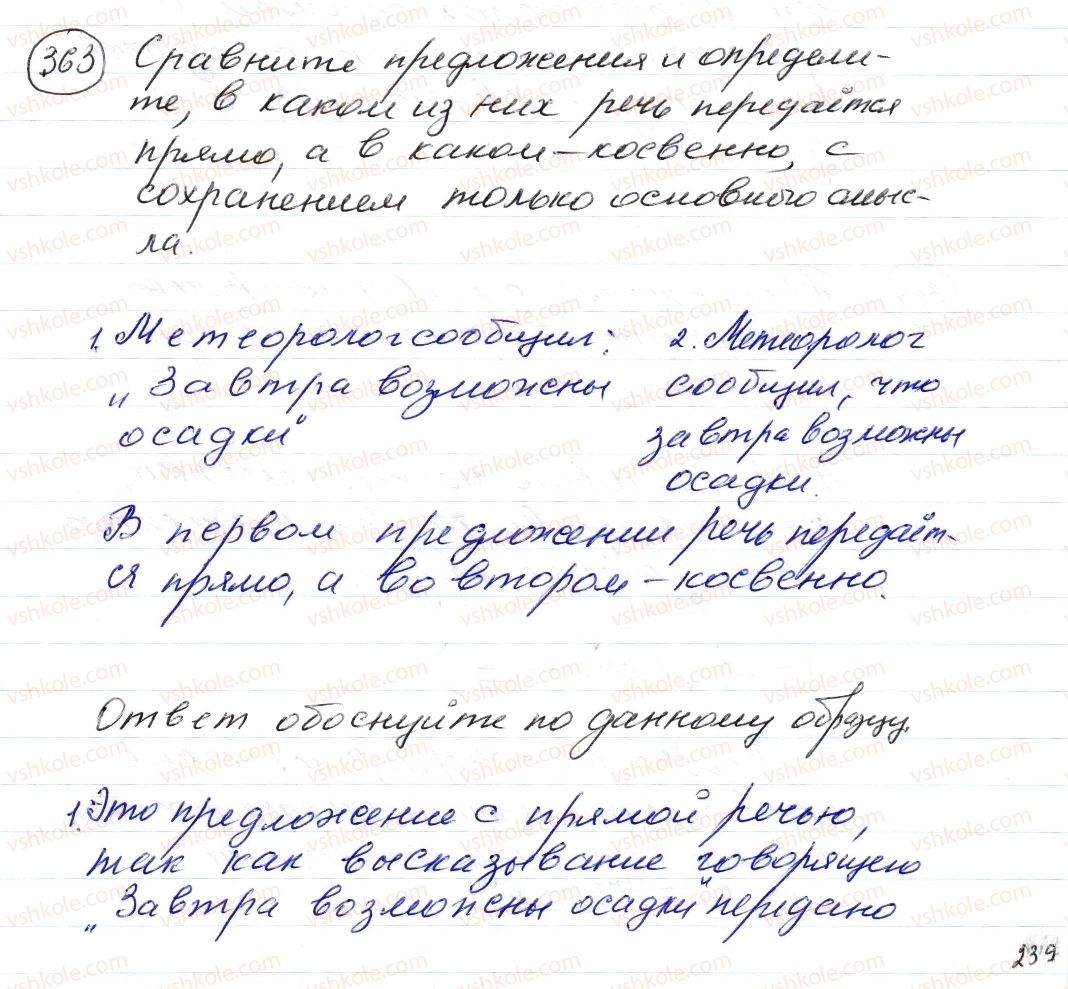 363 Сравните предложения и определи-
те, в каком из них речь передаётся
прямо, а в каком – косвенно, с
сохранением только основного смыс-
ла.
1. Метеоролог сообщил:
„Завтра возможны
осадки"
2. Метеоролог
сообщил, что
завтра возможны
осадки.
В первом предложении речь передаёт-
ся прямо, а во втором – косвенно.
Ответ обоснуйте по данному образцу.
1. Это предложение с прямой речью,
так как высказывание говорящего
„Завтра возможны осадки" передано
239